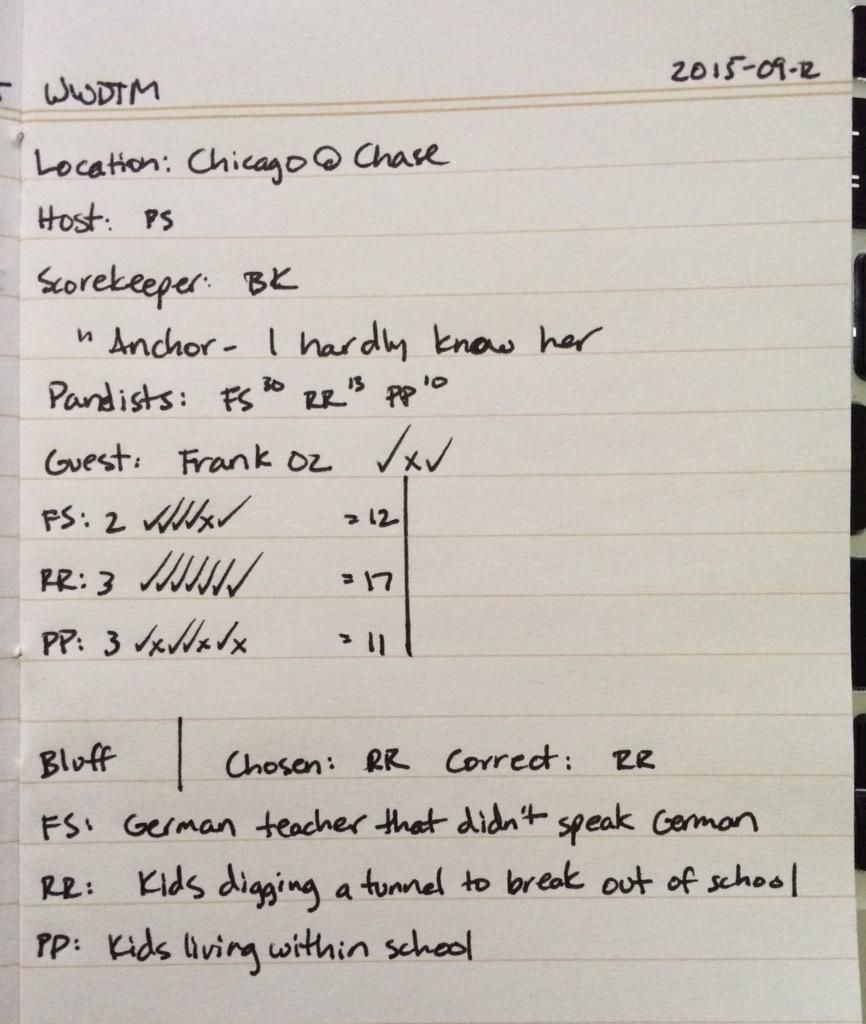 WWDTM 2015-09-12
Location: Chicago @ Chase
Host: PS
Scorekeeper: BK
" Anchor - I hardly know her
Panelists: FS 30 RR 13 PP 10
Guest: Frank Oz ✓x✓
FS: 2 ✓✓✓✓x✓ = 12
RR: 3 ✓✓✓✓✓✓✓ = 17
PP: 3 ✓x✓✓x✓x = 11
Bluff | Chosen: RR Correct: RR
FS: German teacher that didn't speak German
RR: Kids digging a tunnel to break out of school
PP: Kids living within school